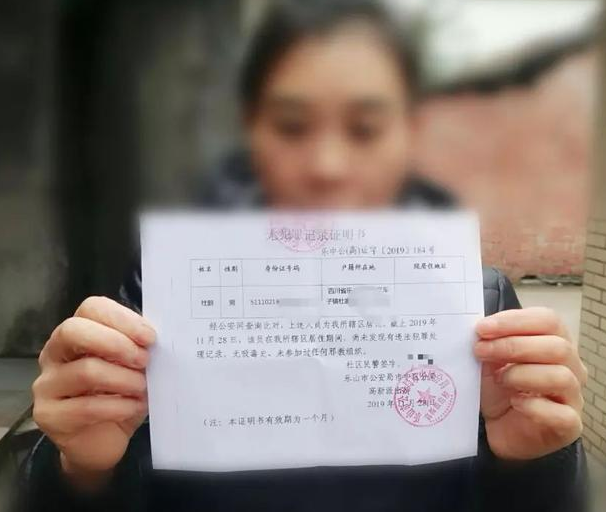 无犯罪记录证明书
乐中公(高)证字〔2019〕184号
姓名 性别 身份证号码 户籍所在地 现居住地址
四川省乐
杜 51110219 子镇杜
经公安网查询比对,上述人员为我所辖区居 截止2019年
11月28日,该员在我所辖区居住期间,尚未发现有违法犯罪处
理记录,无吸毒史、未参加过任何邪教组织。
社区民警签字:
乐山市公安局市中区分局
高新派出所
2019年11月28日
(注:本证明书有效期为一个月)